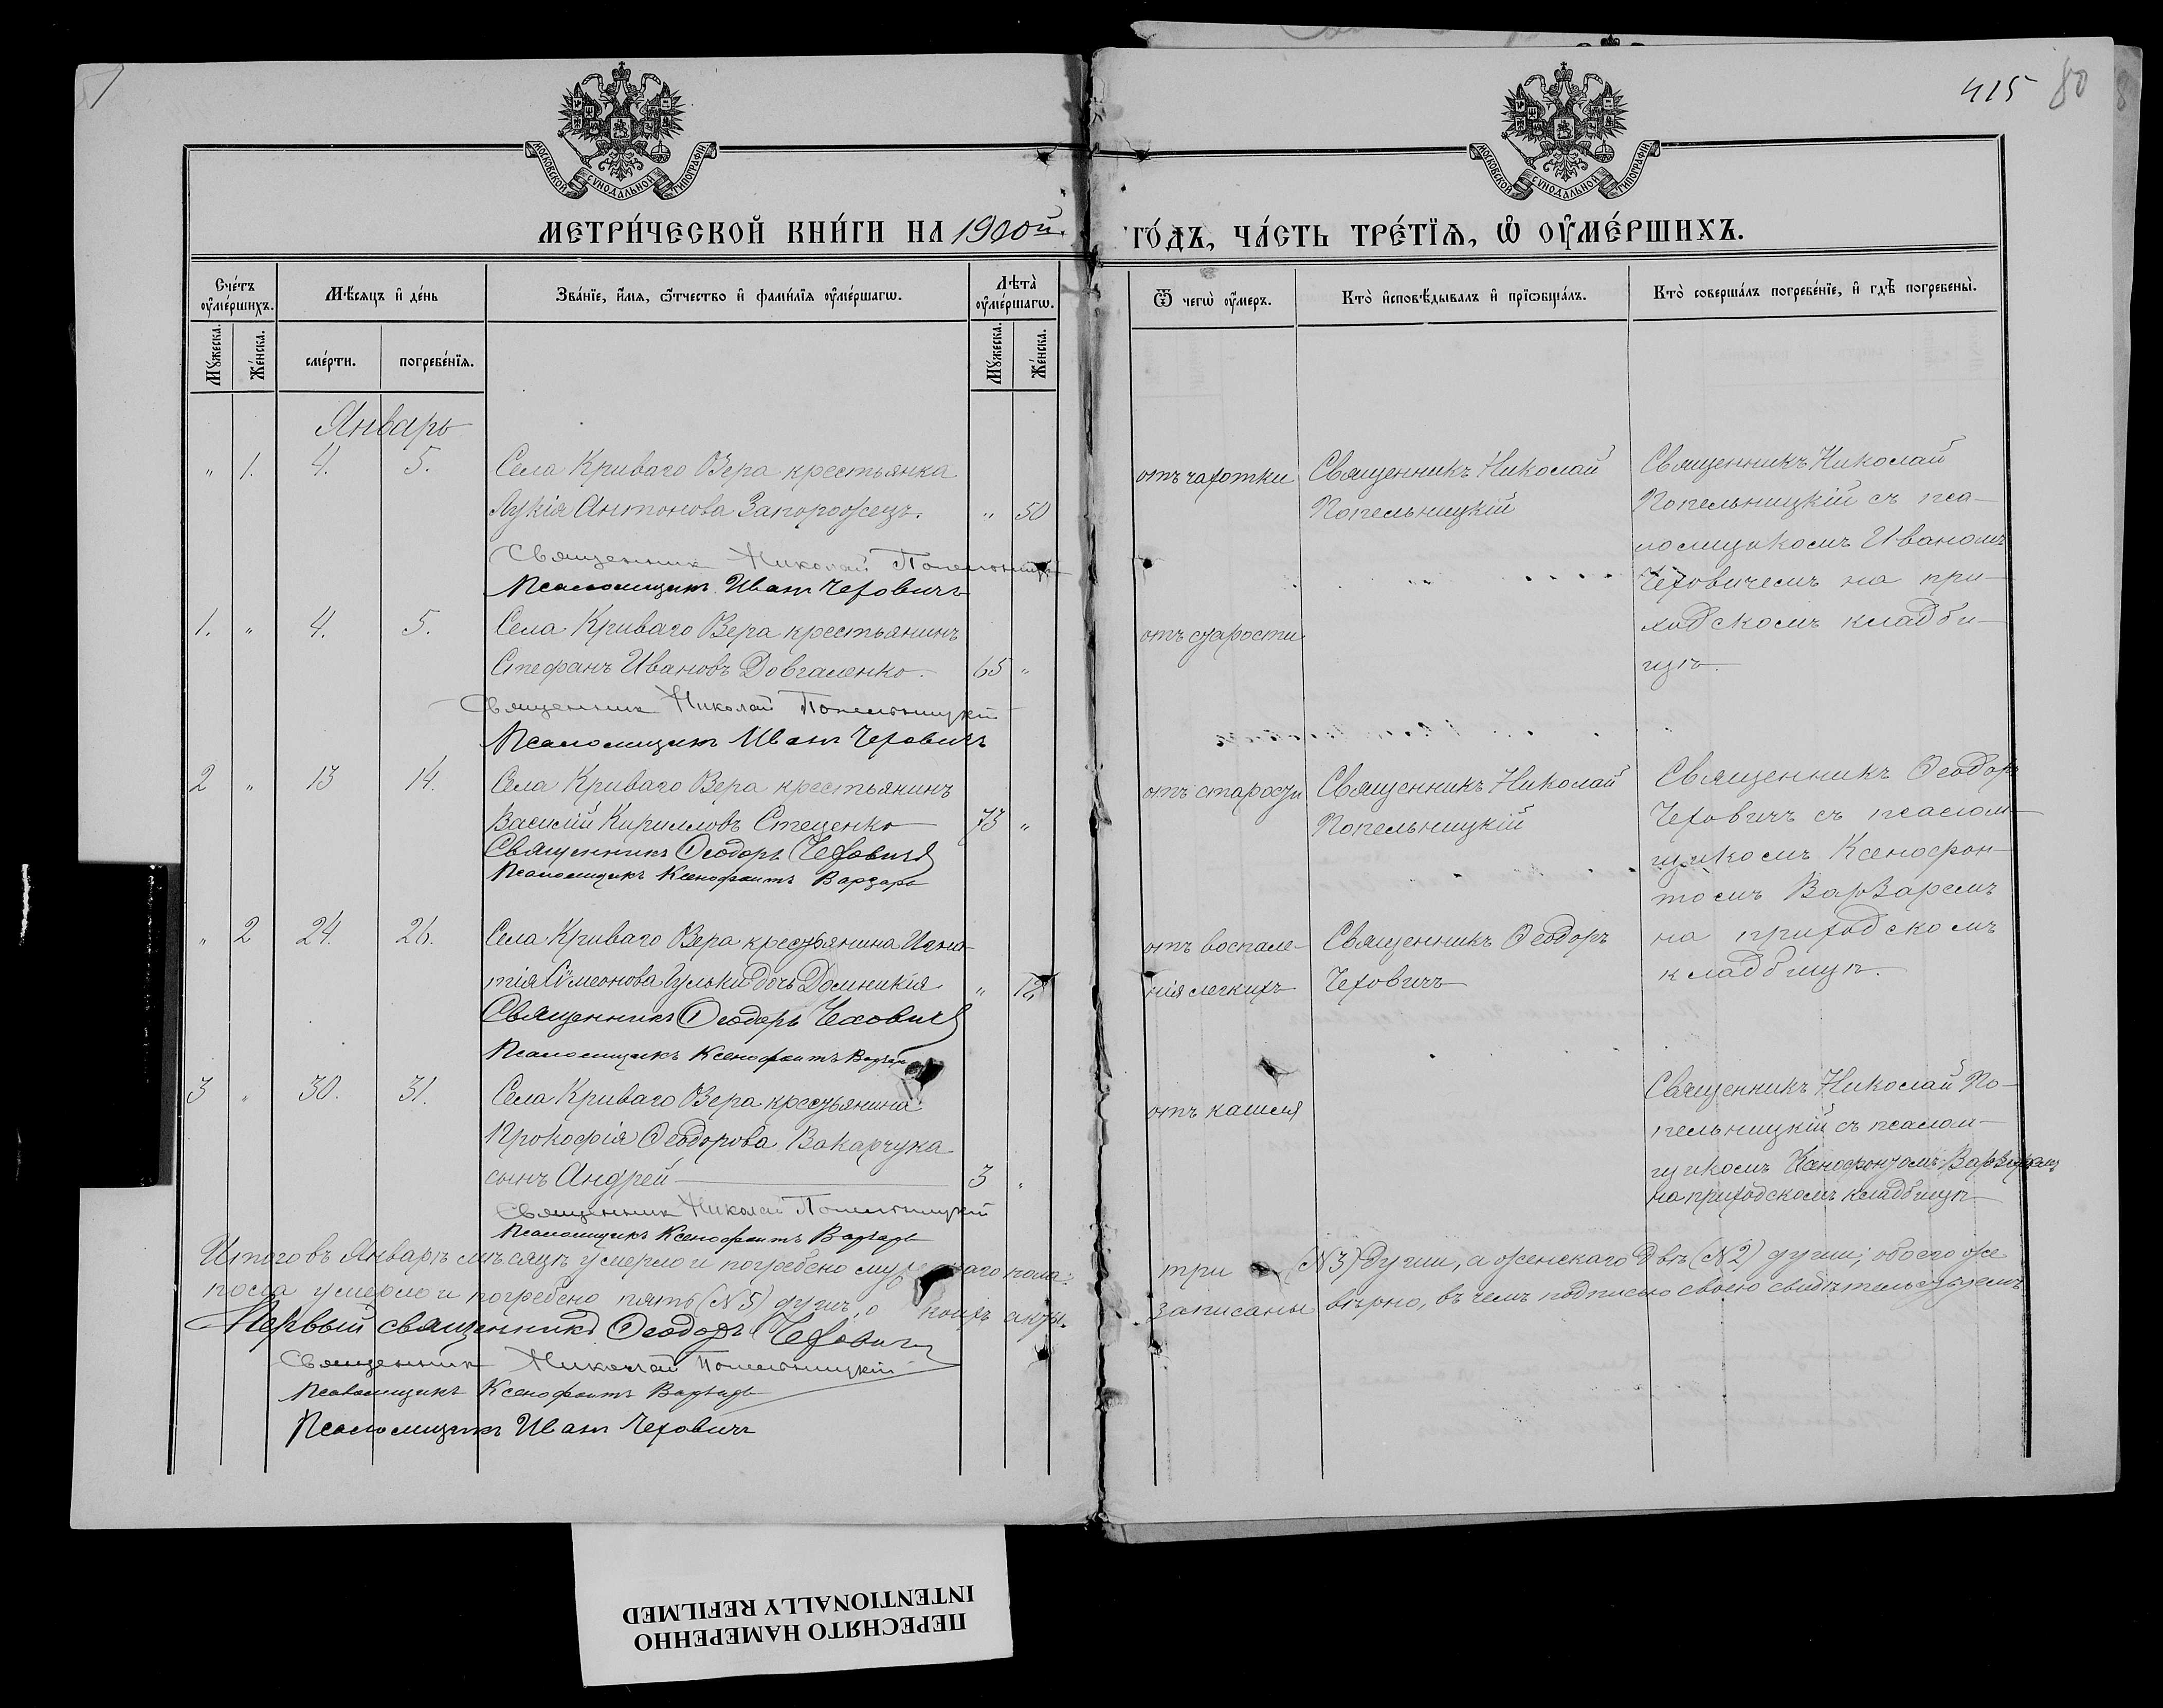 415 80
МОСКОВСКОЙ СѴНОДАЛЬНОЙ ТИПОГРАФІИ
МОСКОВСКОЙ СѴНОДАЛЬНОЙ ТИПОГРАФІИ
МЕТРИ́ЧЕСКОЙ КНИ́ГИ НА 1900й
ГО́ДЪ, ЧА́СТЬ ТРЕ́ТІЯ, Ѡ ОУМЕ́РШИХЪ.
Сче́тъ оуме́ршихъ.
Му́жеска.
Же́нска.
Мѣсяцъ и де́нь
сме́рти.
погребе́нія.
Зва́ніе, и́мя, ѻ́тчество и фами́лія оуме́ршагѡ.
Лѣта̀ оуме́ршагѡ.
Му́жеска.
Же́нска.
Ѿ чегѡ̀ оу́меръ.
Кто̀ исповѣ́дывалъ и пріѡбща́лъ.
Кто̀ соверша́лъ погребе́ніе, и гдѣ̀ погребены̀.
Январь
" 1. 4. 5. Села Криваго Озера крестьянка
Лукія Антонова Запорожецъ. " 50
Священник Николай Попельницкій
Псаломщикъ Иванъ Чеховичъ
отъ чахотки
Священникъ Николай
Попельницкій
Священникъ Николай
Попельницкій съ пса-
ломщикомъ Иваномъ
Чеховичемъ на при-
ходскомъ кладби-
щѣ.
1. " 4. 5. Села Криваго Озера крестьянинъ
Стефанъ Ивановъ Довгаленко. 65 "
Священник Николай Попельницкій
Псаломщикъ Иванъ Чеховичъ
отъ старости
2 " 13 14. Села Криваго Озера крестьянинъ
Василій Кирилловъ Стеценко 73 "
Священникъ Ѳеодоръ Чеховичъ
Псаломщикъ Ксенофонтъ Варзарь
отъ старости
Священникъ Николай
Попельницкій
Священникъ Ѳеодоръ
Чеховичъ съ псалом-
щикомъ Ксенофон-
томъ Варзаремъ
на приходскомъ
кладбищѣ.
" 2 24. 26. Села Криваго Озера крестьянина Игна-
тія Сѵмеонова Гульки дочь Домникія "
Священникъ Ѳеодоръ Чеховичъ
Псаломщикъ Ксенофонтъ Варзарь
отъ воспале-
нія легкихъ
Священникъ Ѳеодоръ
Чеховичъ
3 " 30. 31. Села Криваго Озера крестьянина
Прокофія Ѳеодорова Вакарчука
сынъ Андрей 3 "
Священник Николай Попельницкій
Псаломщикъ Ксенофонтъ Варзарь
отъ кашля
Священникъ Николай По-
пельницкій съ псалом-
щикомъ Ксенофонтомъ Варзаремъ
на приходскомъ кладбищѣ
Итого въ Январѣ мѣсяцѣ умерло и погребено пола:
три (№3) души, а женскаго двѣ (№2) души; обоего же
пола умерло и погребено пять (№5) душъ, о коихъ акты
записаны вѣрно, въ чемъ подписью своею свидѣтельствуемъ
Первый священникъ Ѳеодоръ Чеховичъ
Священник Николай Попельницкій
Псаломщикъ Ксенофонтъ Варзарь
Псаломщикъ Иванъ Чеховичъ
ПЕРЕСНЯТО НАМЕРЕННО
INTENTIONALLY REFILMED